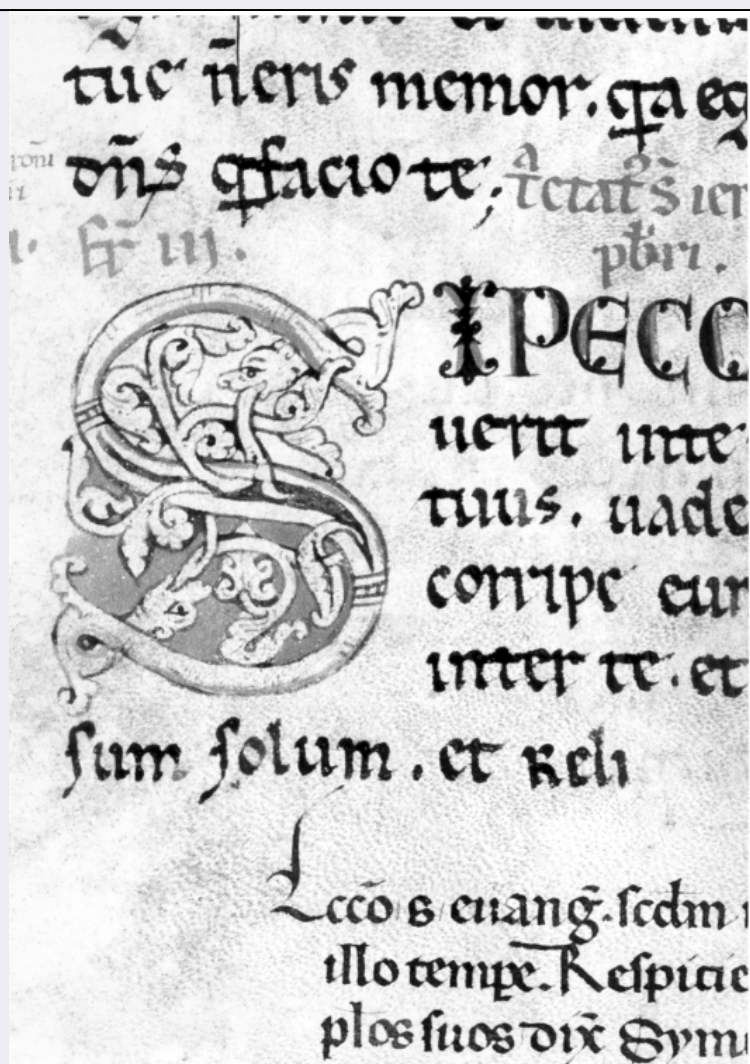 tūc n̄eris memor. q̄a eg
dn̄s q̄ facio te;
t̄ctat̊ S ier
fr̄ iii.
pb̄ri.
SIPECC
uerit inte
tuus. uade
corripe eum
inter te. et
sum solum. et Reli
Lcc̄o s euanḡ. scdm
illo tempe. Respicie
plos suos dix̄ Sym